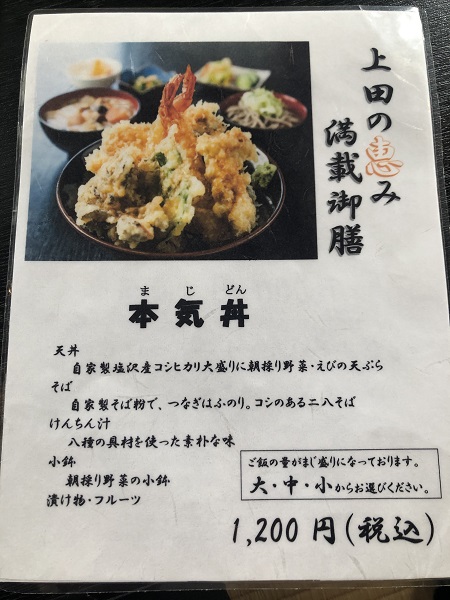 上田の恵み
満載御膳
まじどん
本気丼
天丼
自家製塩沢産コシヒカリ大盛りに朝採り野菜・えびの天ぷら
そば
自家製そば粉で、つなぎはふのり。コシのある二八そば
けんちん汁
八種の具材を使った素朴な味
小鉢
朝採り野菜の小鉢
漬け物・フルーツ
ご飯の量がまじ盛りになっております。
大・中・小からお選びください。
1,200円(税込)